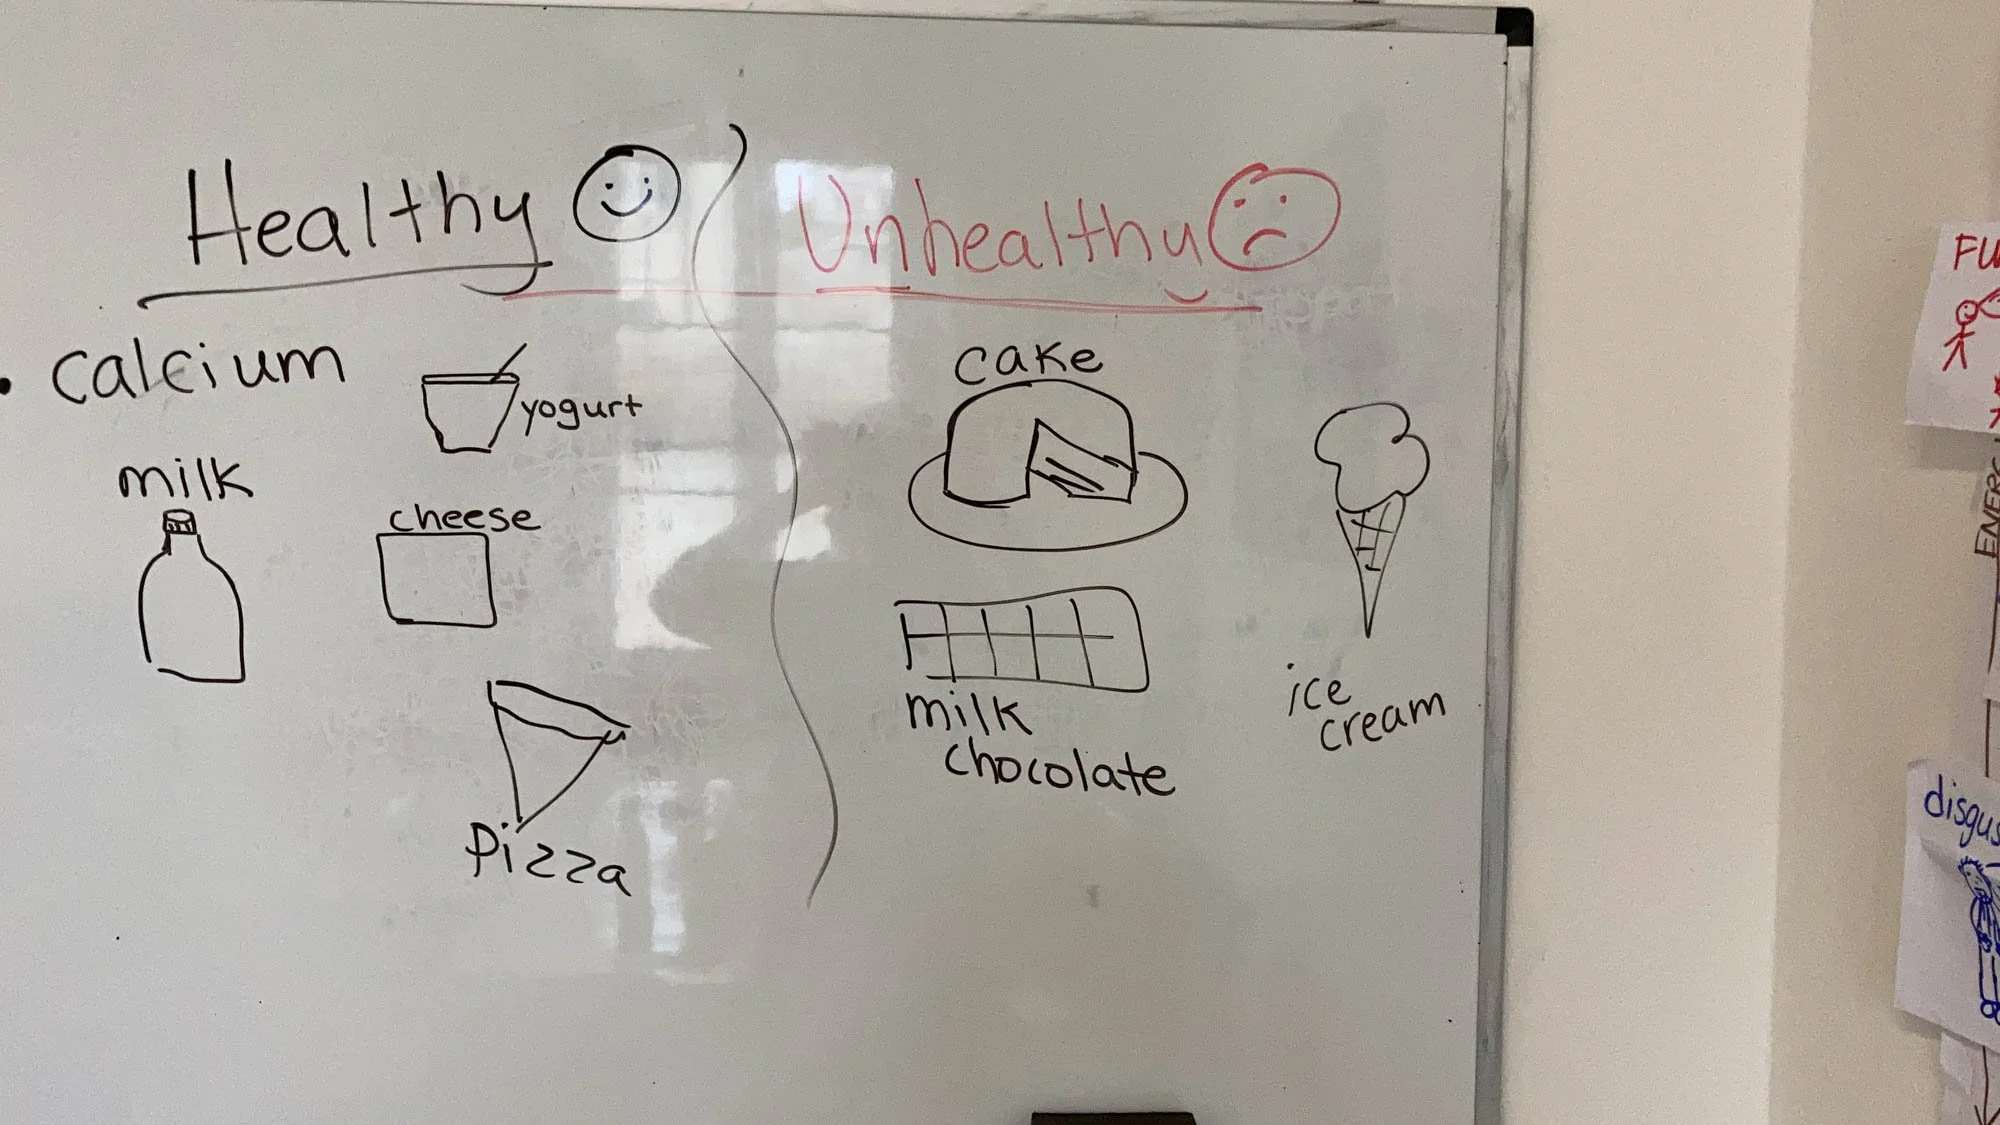 Healthy
Unhealthy
• calcium
yogurt
milk
cheese
Pizza
cake
milk
chocolate
ice
cream
FU
ENERG
disgus